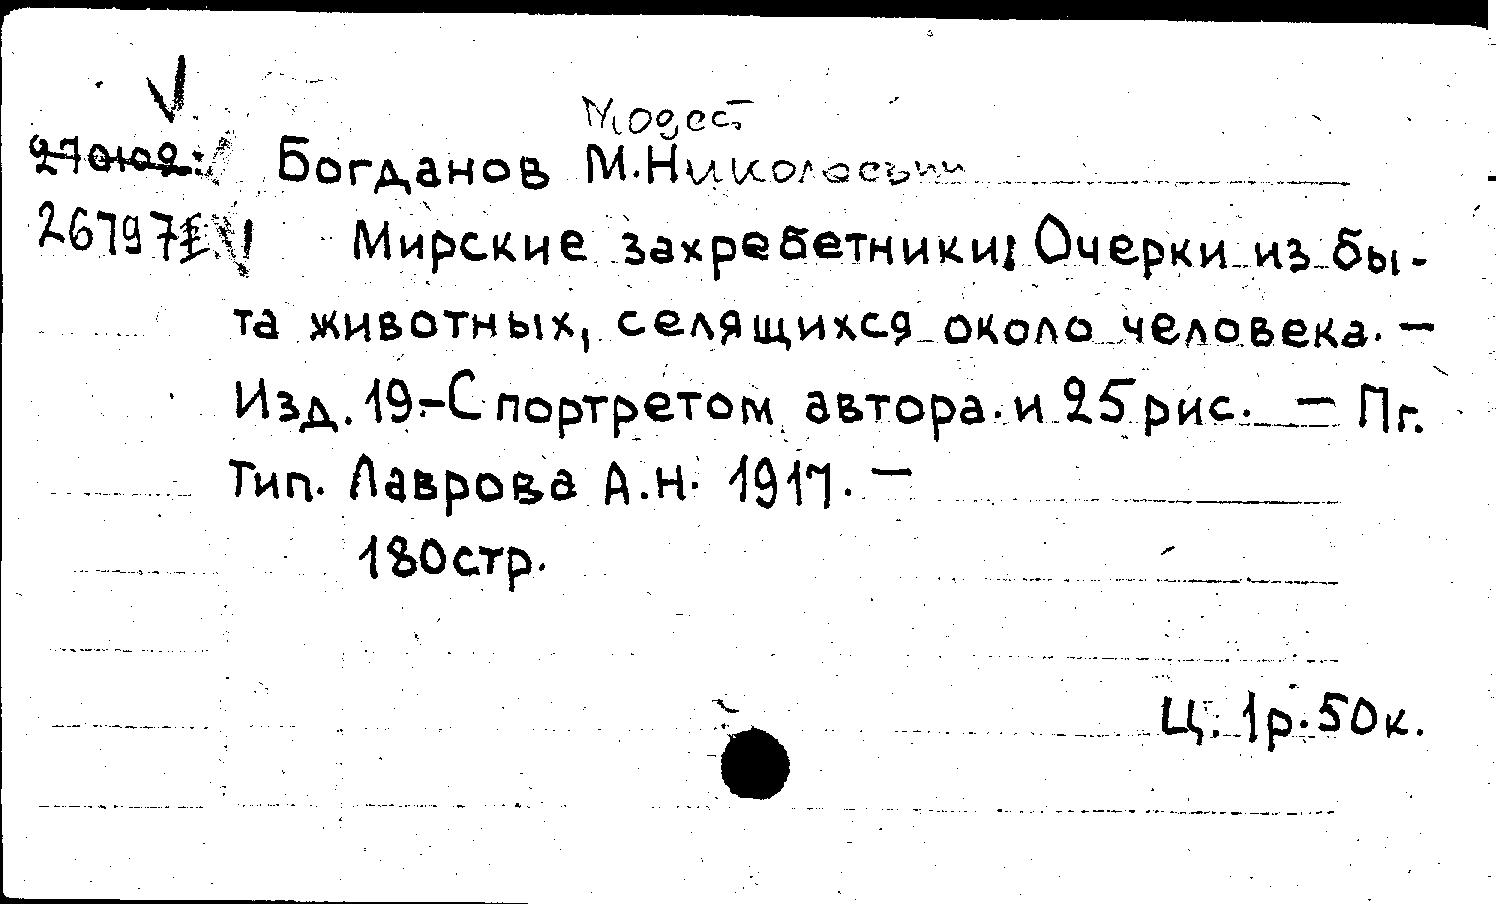 Модест
Богданов М.Николаевич
26797
Мирские захребетники: Очерки из бы-
та животных, селящихся около человека. —
Изд. 19.-С портретом автора и 25 рис. — Пг.
Тип. Лаврова А.Н. 1917. —
180стр.
Ц. 1р.50к.